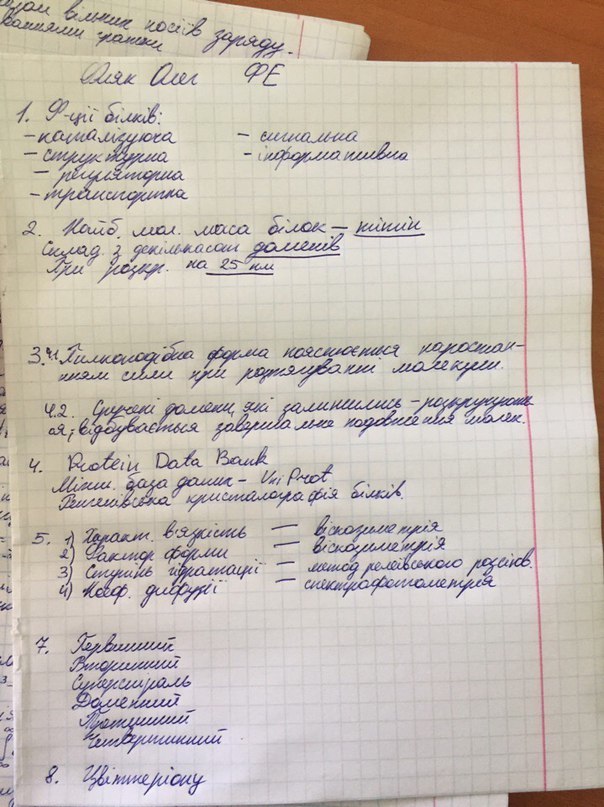 вільних носіїв заряду.
ваннями гратки
Оляк Олег ФЕ
1. Ф-ції білків:
- каталізуюча - сигнальна
- структурна - інформативна
- регуляторна
- транспортна
2. Найб. мол. маса білок - тітін
Склад. з декількасот доменів
При розкр. на 25 нм
3. ч1. Пилкоподібна форма пояснюється наростан-
ням сили при розтягуванні молекули.
ч.2. Скручені домени, які залишились - розкручують
ся, відбувається завершальне подовження молек.
4. Protein Data Bank
Міжн. база даних - UniProt
Рентгенівська кристалографія білків.
5. 1) Характ. в'язкість — віскозиметрія
2) Фактор форми — віскозиметрія
3) Ступінь гідратації — метод релеївського розсіюв.
4) Коеф. дифузії — спектрофотометрія
7. Первинний
Вторинний
Суперспіраль
Доменний
Третинний
Четвертинний
8. Цвіттеріону